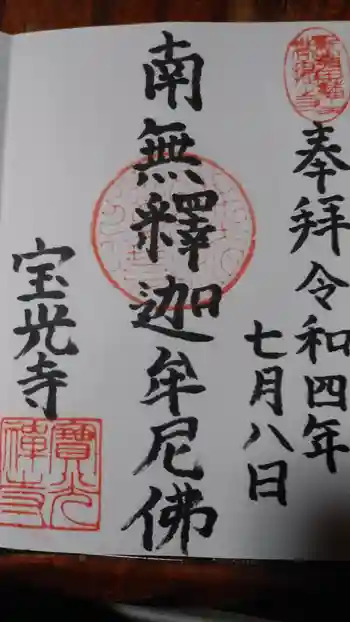 奉拝令和四年
七月八日
南無釋迦牟尼佛
宝光寺
寶光
禅寺